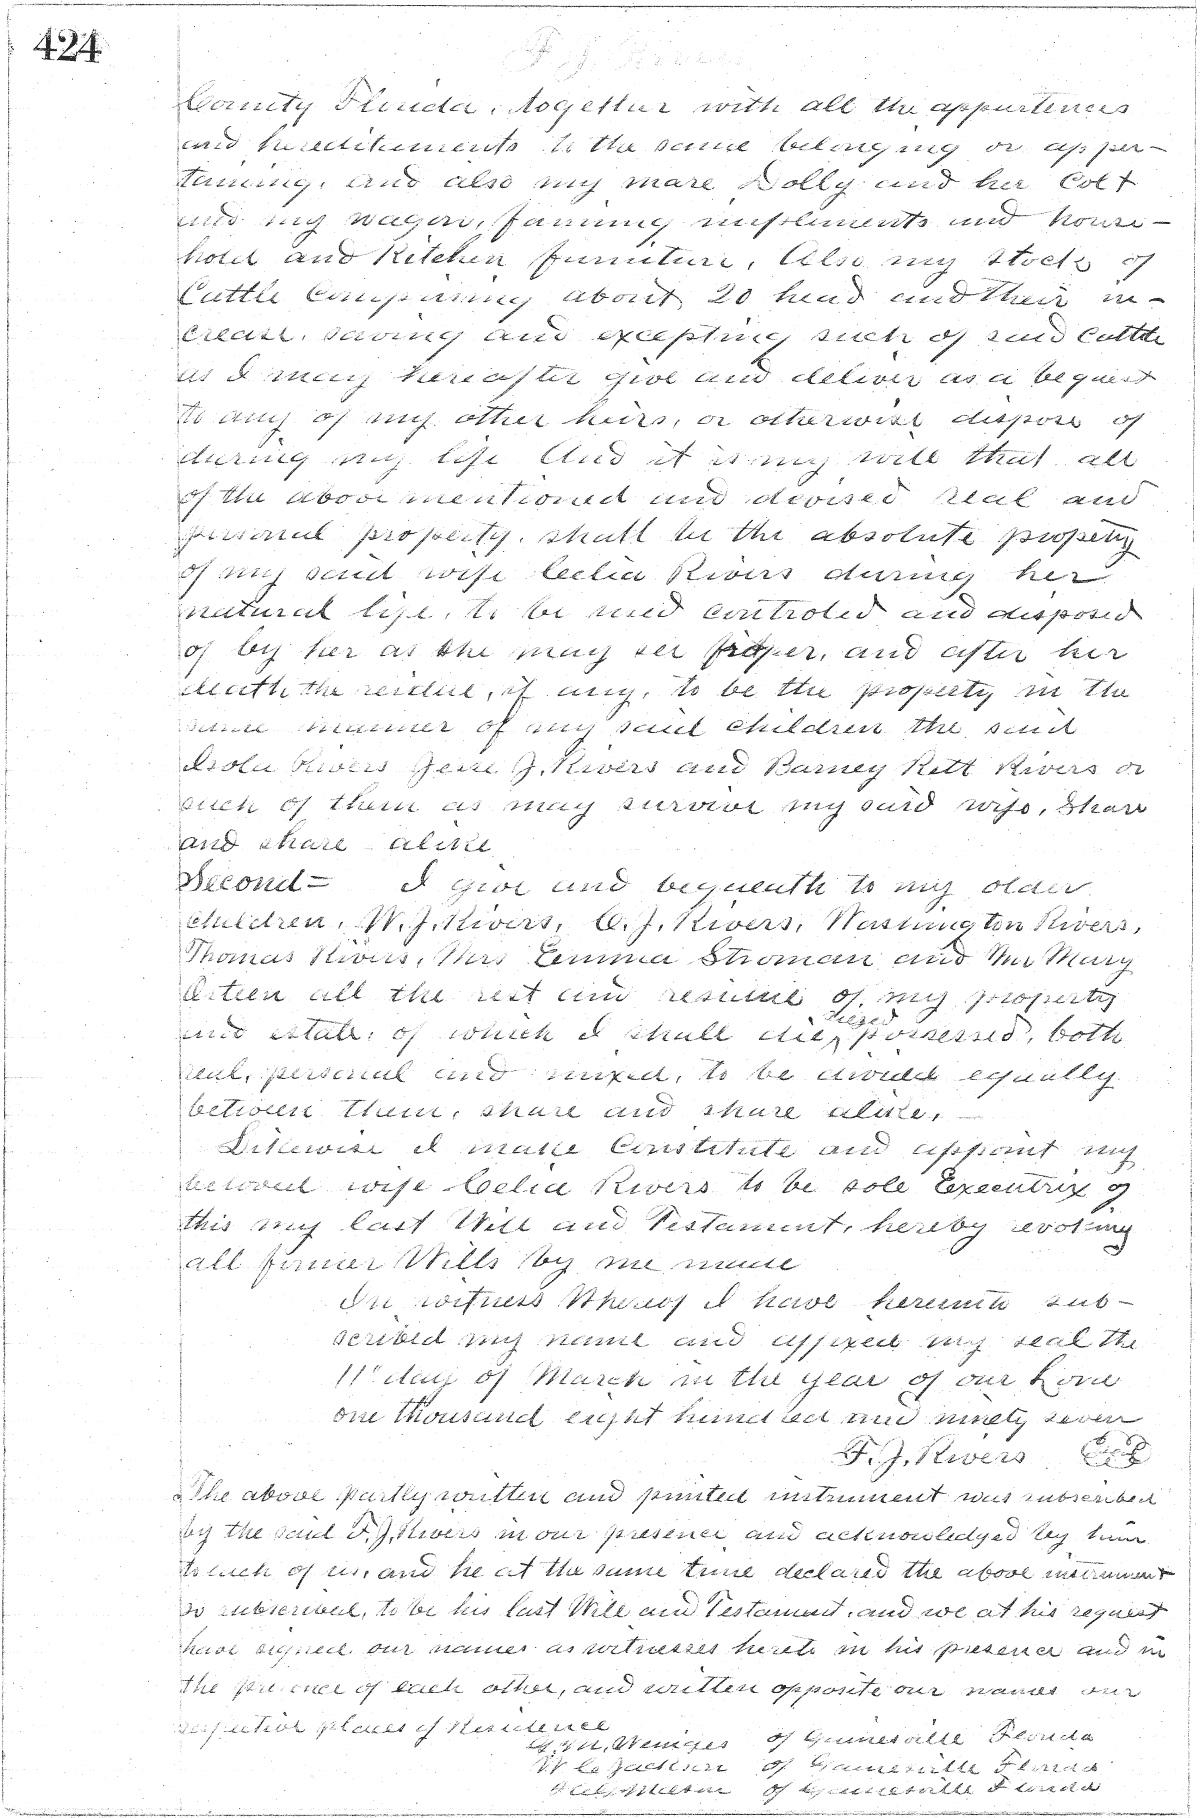 424
F. J. Rivers
County Florida, together with all the appurtences
and hereditaments to the same belonging or apper-
taining, and also my mare Dolly and her Colt
and my wagon, farming impliments and house-
hold and Kitchen furniture, Also my stock of
Cattle Comprising about 20 head and their in-
crease, saving and excepting such of said Cattle
as I may hereafter give and deliver as a bequest
to any of my other heirs, or otherwise dispose of
during my life And it is my will that all
of the above mentioned and devised real and
personal property, shall be the absolute propety
of my said wife Celia Rivers during her
natural life, to be used controled and disposed
of by her as she may see proper, and after her
death the residue, if any, to be the property in the
same manner of my said children the said
Isola Rivers Jesse J. Rivers and Barney Rett Rivers or
such of them as may survive my said wife, Share
and share alike
Second= I give and bequeath to my older
children, W. J. Rivers, C. J. Rivers, Washington Rivers,
Thomas Rivers, Mrs Emma Stroman and Mrs Mary
all the rest and residue of my property
and estate, of which I shall die, possessed, both
real, personal and mixed, to be divided equally
between them, share and share alike, —
Likewise I make Constitute and appoint my
beloved wife Celia Rivers to be sole Executrix of
this my last Will and Testament, hereby revoking
all former Wills by me made
In witness Whereof I have hereunto sub-
scribed my name and affixed my seal the
11" day of March in the year of our Lord
one thousand eight hundred and ninety seven
F. J. Rivers Seal
The above partly written and printed instrument was subscribed
by the said F. J. Rivers in our presence and acknowledged by him
to each of us, and he at the same time declared the above instrument
so subscribed, to be his last Will and Testament, and we at his request
have signed our names as witnesses hereto in his presence and in
the presence of each other, and written opposite our names our
respective places of Residence
of Gainesville Florida
W C Jackson of Gainesville Florida
of Gainesville Florida